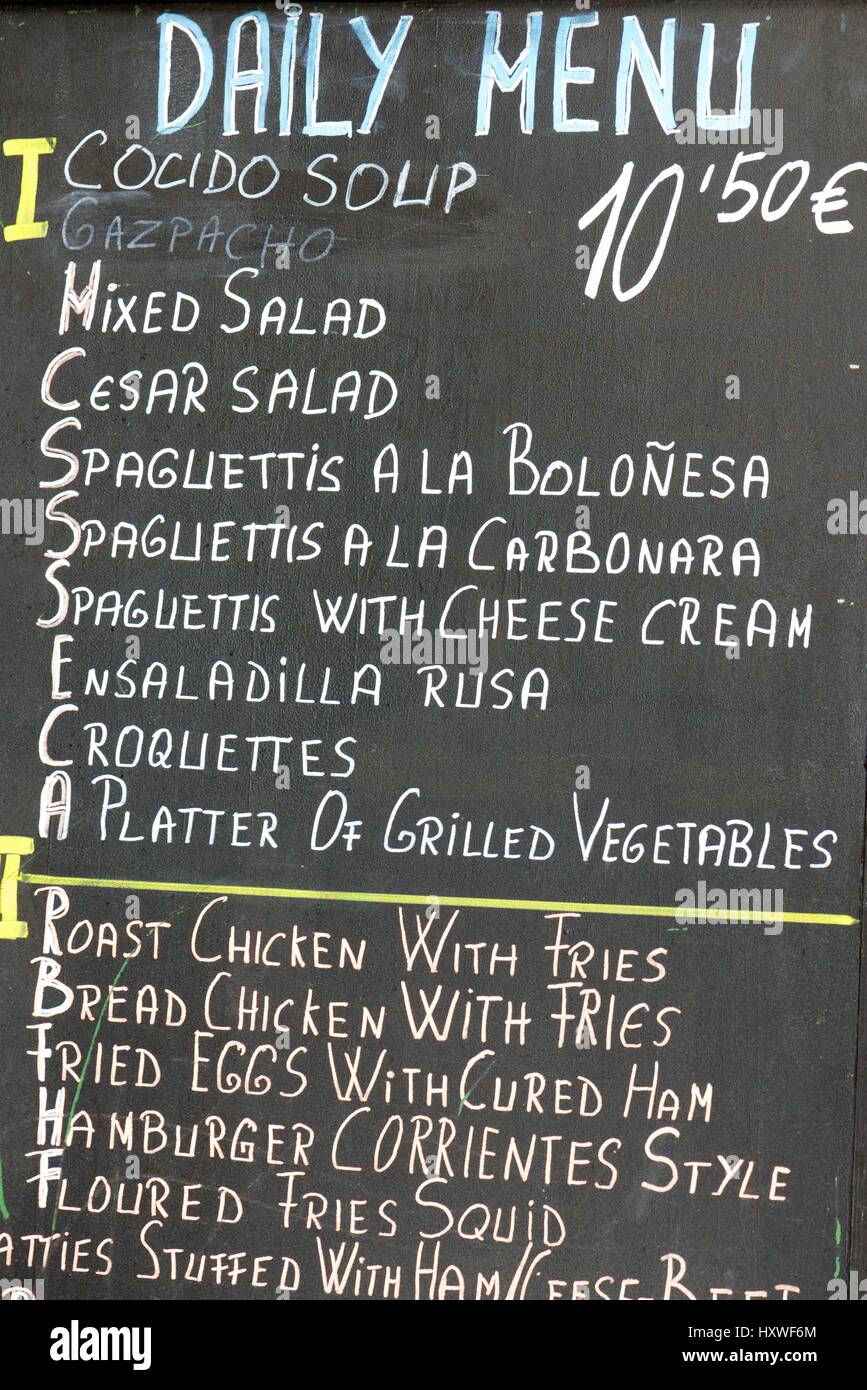 DAILY MENU
I COCIDO SOUP 10'50€
GAZPACHO
MiXED SALAD
CESAR SALAD
SPAGUETTiS A LA BOLOÑESA
SPAGUETTIS A LA CARBONARA
SPAGUETTIS WITH CHEESE CREAM
ENSALADiLLA RUSA
CROQUETTES
A PLATTER OF GRILLED VEGETABLES
I
ROAST CHICKEN WITH FRIES
BREAD CHICKEN WITH FRIES
FRIED EGGS WiTH CURED HAM
HAMBURGER CORRIENTES STYLE
FLOURED FRIES SQUiD
ATTIES STUFFED WiTH HAM/CEESE-BEET
alamy
Image ID: HXWF6M
www.alamy.com